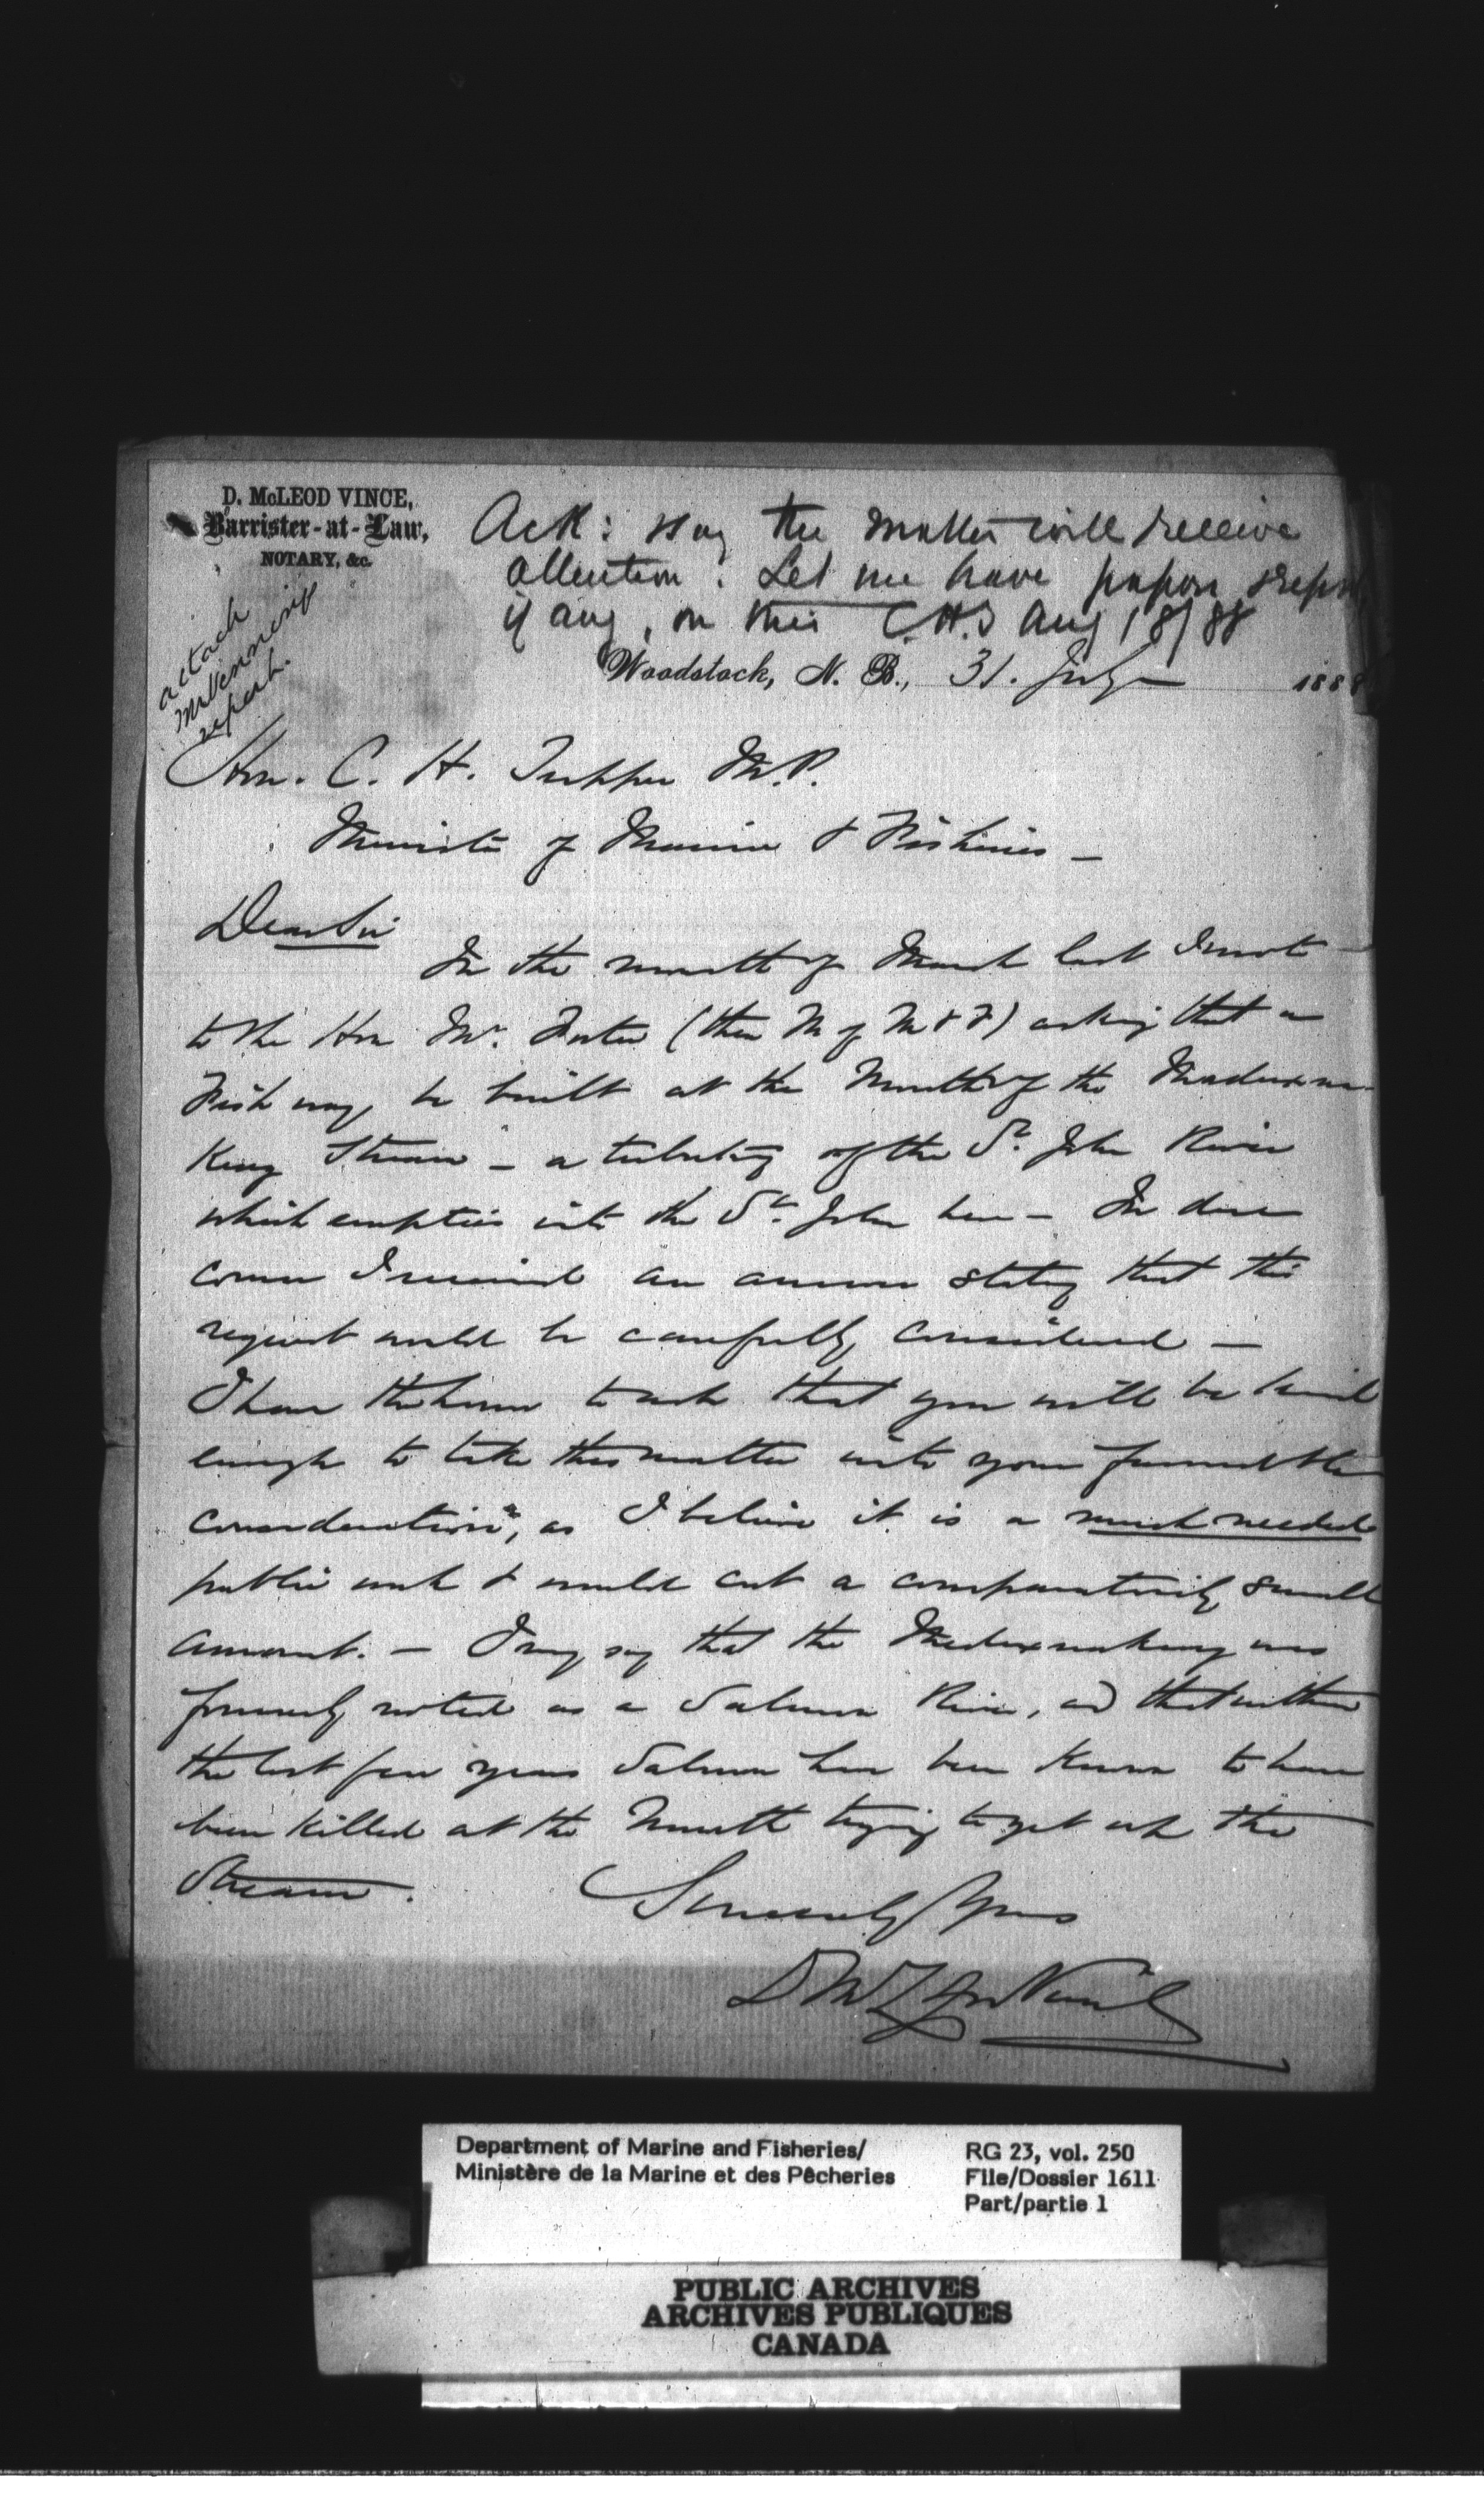 D. McLEOD VINCE,
Barrister-at-Law,
NOTARY, &c.
Ack: say the matter will receive
attention. Let me have papers & report,
if any, on this C.H.T Aug 18/88
attach
report.
Woodstock, N. B., 31. July 1888
Hon. C. H. Tupper M.P.
Minister of Marine & Fisheries —
Dear Sir
In the month of March last I wrote
to the Hon Mr. Foster (then M of M & F) asking that a
Fish way be built at the Mouth of the Meduxna-
keag Stream — a tributary of the St. John River
which empties into the St. John here — In due
course I received an answer stating that the
request would be carefully considered —
I have the honor to ask that you will be kind
enough to take this matter into your favorable
consideration, as I believe it is a much needed
public work & would cost a comparatively small
amount. — I may say that the Meduxnakeag was
formerly noted as a Salmon River, and that within
the last few years Salmon have been known to have
been killed at the Mouth trying to get up the
Stream.
Sincerely Yours
D McLeod Vince
Department of Marine and Fisheries/
Ministère de la Marine et des Pêcheries
RG 23, vol. 250
File/Dossier 1611
Part/partie 1
PUBLIC ARCHIVES
ARCHIVES PUBLIQUES
CANADA